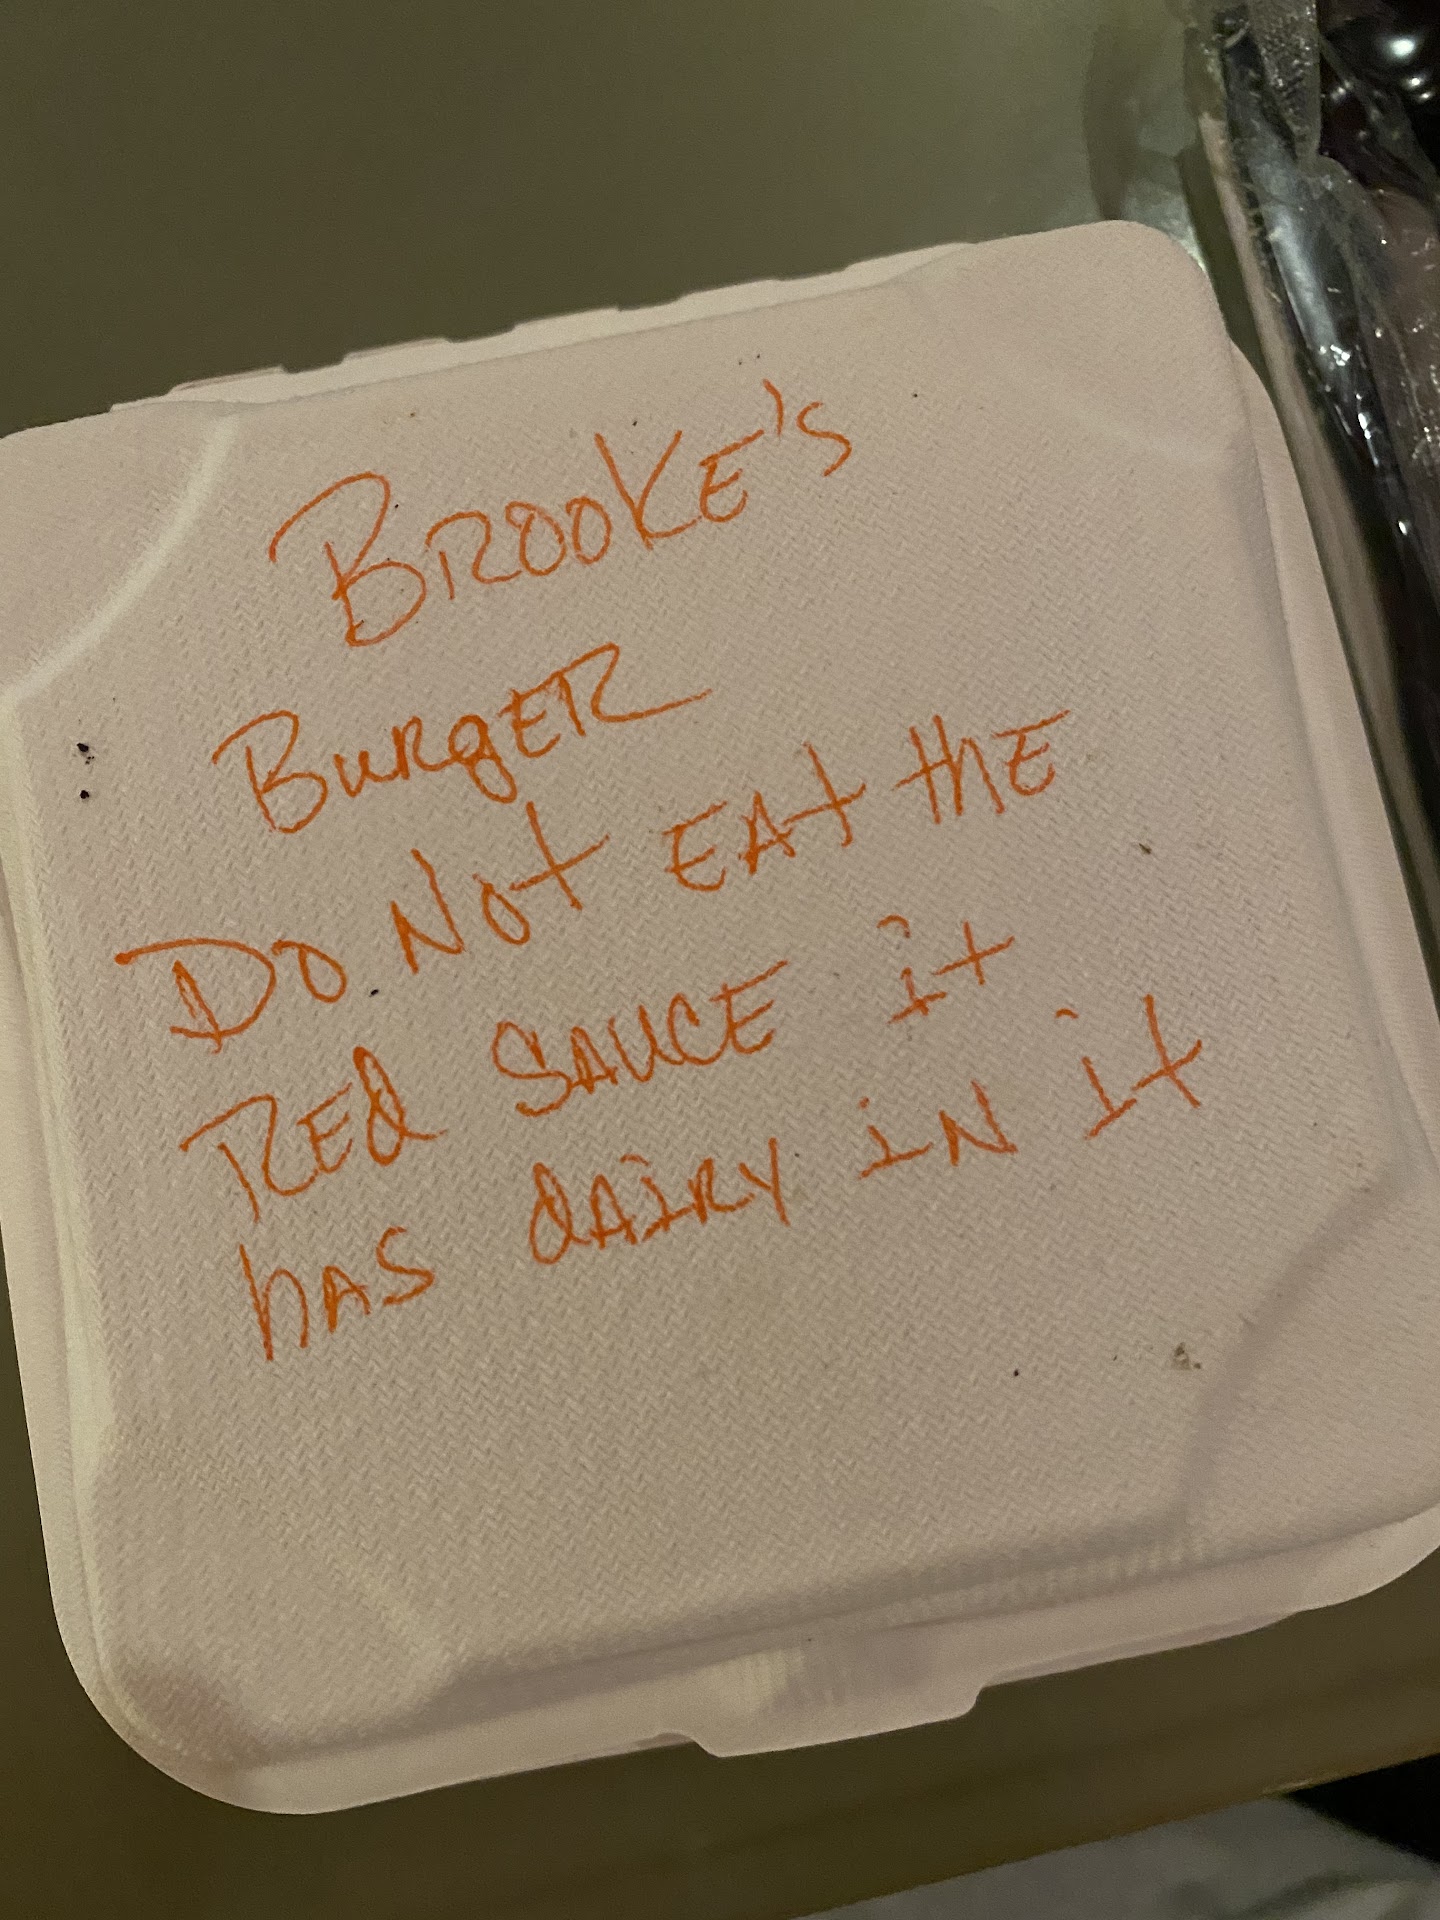 BROOKE's
BURgER
DO NOt EAt thE
REd SAUCE it
hAS dAiRY iN it